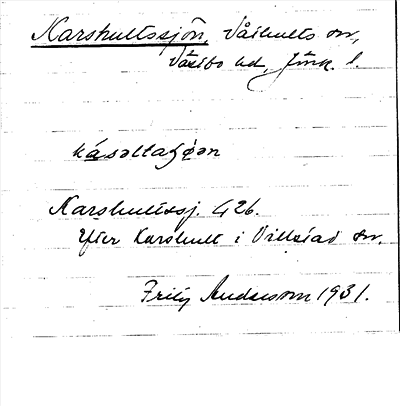 Karshultssjön, Våthults sn,
Västbo hd, Jönk. l.
kásəltaʂɧøən
Karshultssj. 426.
Efter Karshult i Villstad sn.
Fritz Andersson 1931.